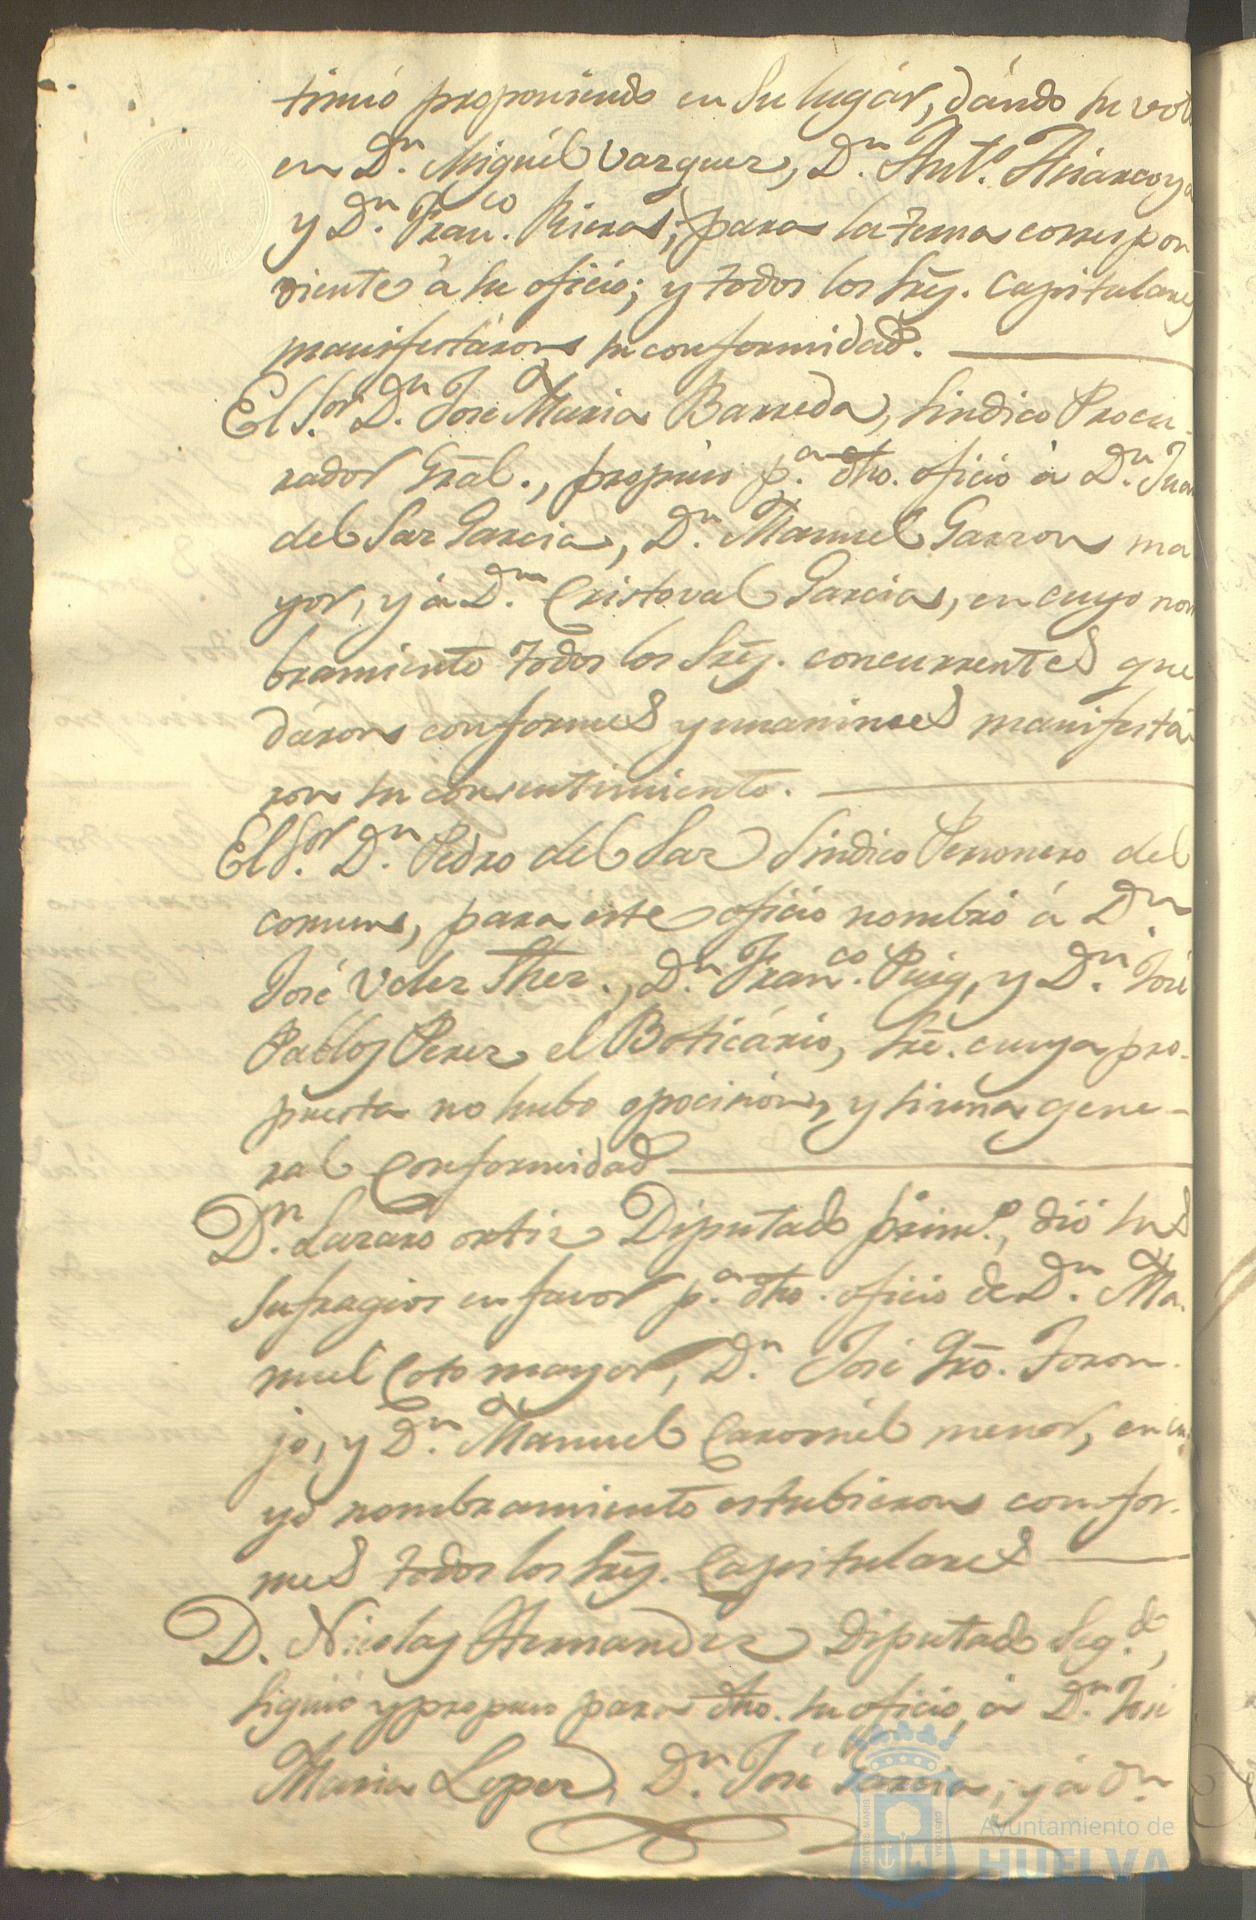 tinuó proponiendo en su lugár, dándo su voto
en Dn. Miguél Vazquez, Dn. Anto.
y Dn. Franco. Rieras; para la terna correspon
diente á su oficio; y todos los Srẽs. Capitulares
manifestáron su conformidad.
El Sor. Dn. José Maria Barreda, Sindico Procu-
rador Grãl., propuso pa. dho. oficio á Dn. Juan
del Saz Garcia, Dn. Manuel Garzon ma
yor, y á Dn. Cristoval Garcia, en cuyo nom
bramiento todos los Srẽs. concurrentes que
dáron conformes y unanimes manifestá
ron su consentimiento.
El Sor. Dn. Pedro del Saz Sindico Personero del
comun, para este oficio nombró á Dn.
José Velez, Dn. Franco. Puig, y Dn. José
Pablos Perez el Boticário, sre. cuya pro-
puesta no hubo oposicion, y si una gene-
ral Conformidad
Dn. Lazaro ortiz Diputado primo., dió sus
sufragios en favor pa. dho. oficio de Dn. Ma-
nuel Coto mayor, Dn. José Toron-
jo, y Dn. Manuel Caromél menor, en cu
yo nombramiento estubieron confor-
mes todos los Srẽs. Capitulares
D. Nicolas Hernandez Diputado Segdo.,
siguió y propuso para dho. su oficio, á Dn. José
Maria Lopez, Dn. José Garcia, y á Dn.
Ayuntamiento de
HUELVA